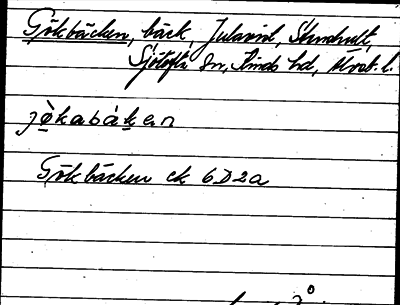 Gökbäcken, bäck, Julared, Stenhult,
Sjötofta sn, Kinds hd, Älvsb. l.
jö̀kabákan
Gökbäcken ek 6D2a